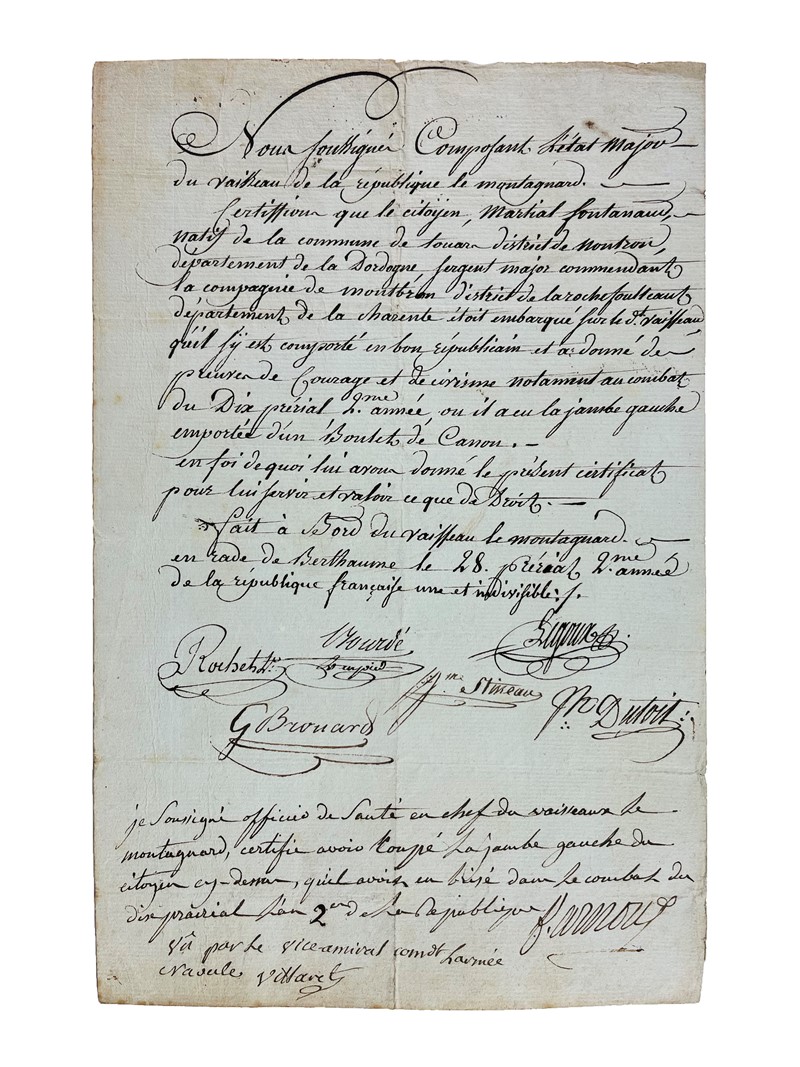 Nous soussignés Composant L'état Major
du vaisseau de la république le montagnard.
Certiffions que le citoÿen, Martial fontanaud,
natif de la commune de touars district de nontron,
département de la Dordogne, sergent major commendant
la compagnie de montbrón district de larochefoulteaut
département de la charente étoit embarqué sur le dt. vaisseau
qu'il s'ÿ est comporté en bon républicain et a donné des
preuves de Courage et de civisme notament au combat
du Dix prérial 2.me année, ou il a eu la jambe gauche
emportée d'un Boulet de Canon. -
en foi de quoi lui avons donné le présent certificat
pour lui servir et valoir ce que de Droit. -
fait à Bord du vaisseau le montagnard.
en rade de Berthaume le 28. prérial 2.me année
de la republique française une et indivisible ./.
Bourdé Ligoux
Rochet
Stineau
Dutoit
G Brouard
je Sousigné officié de Santé en chef du vaiseaux le
montagnard, certifie avoir Coupé La jambe gauche du
citoyen cy-dessus, quil avoir eu brisé dans le combat du
dix prairial L'an 2em de La Republique f. arnoud
Vû par le vice amiral comdt L'armée
Navale Villaret